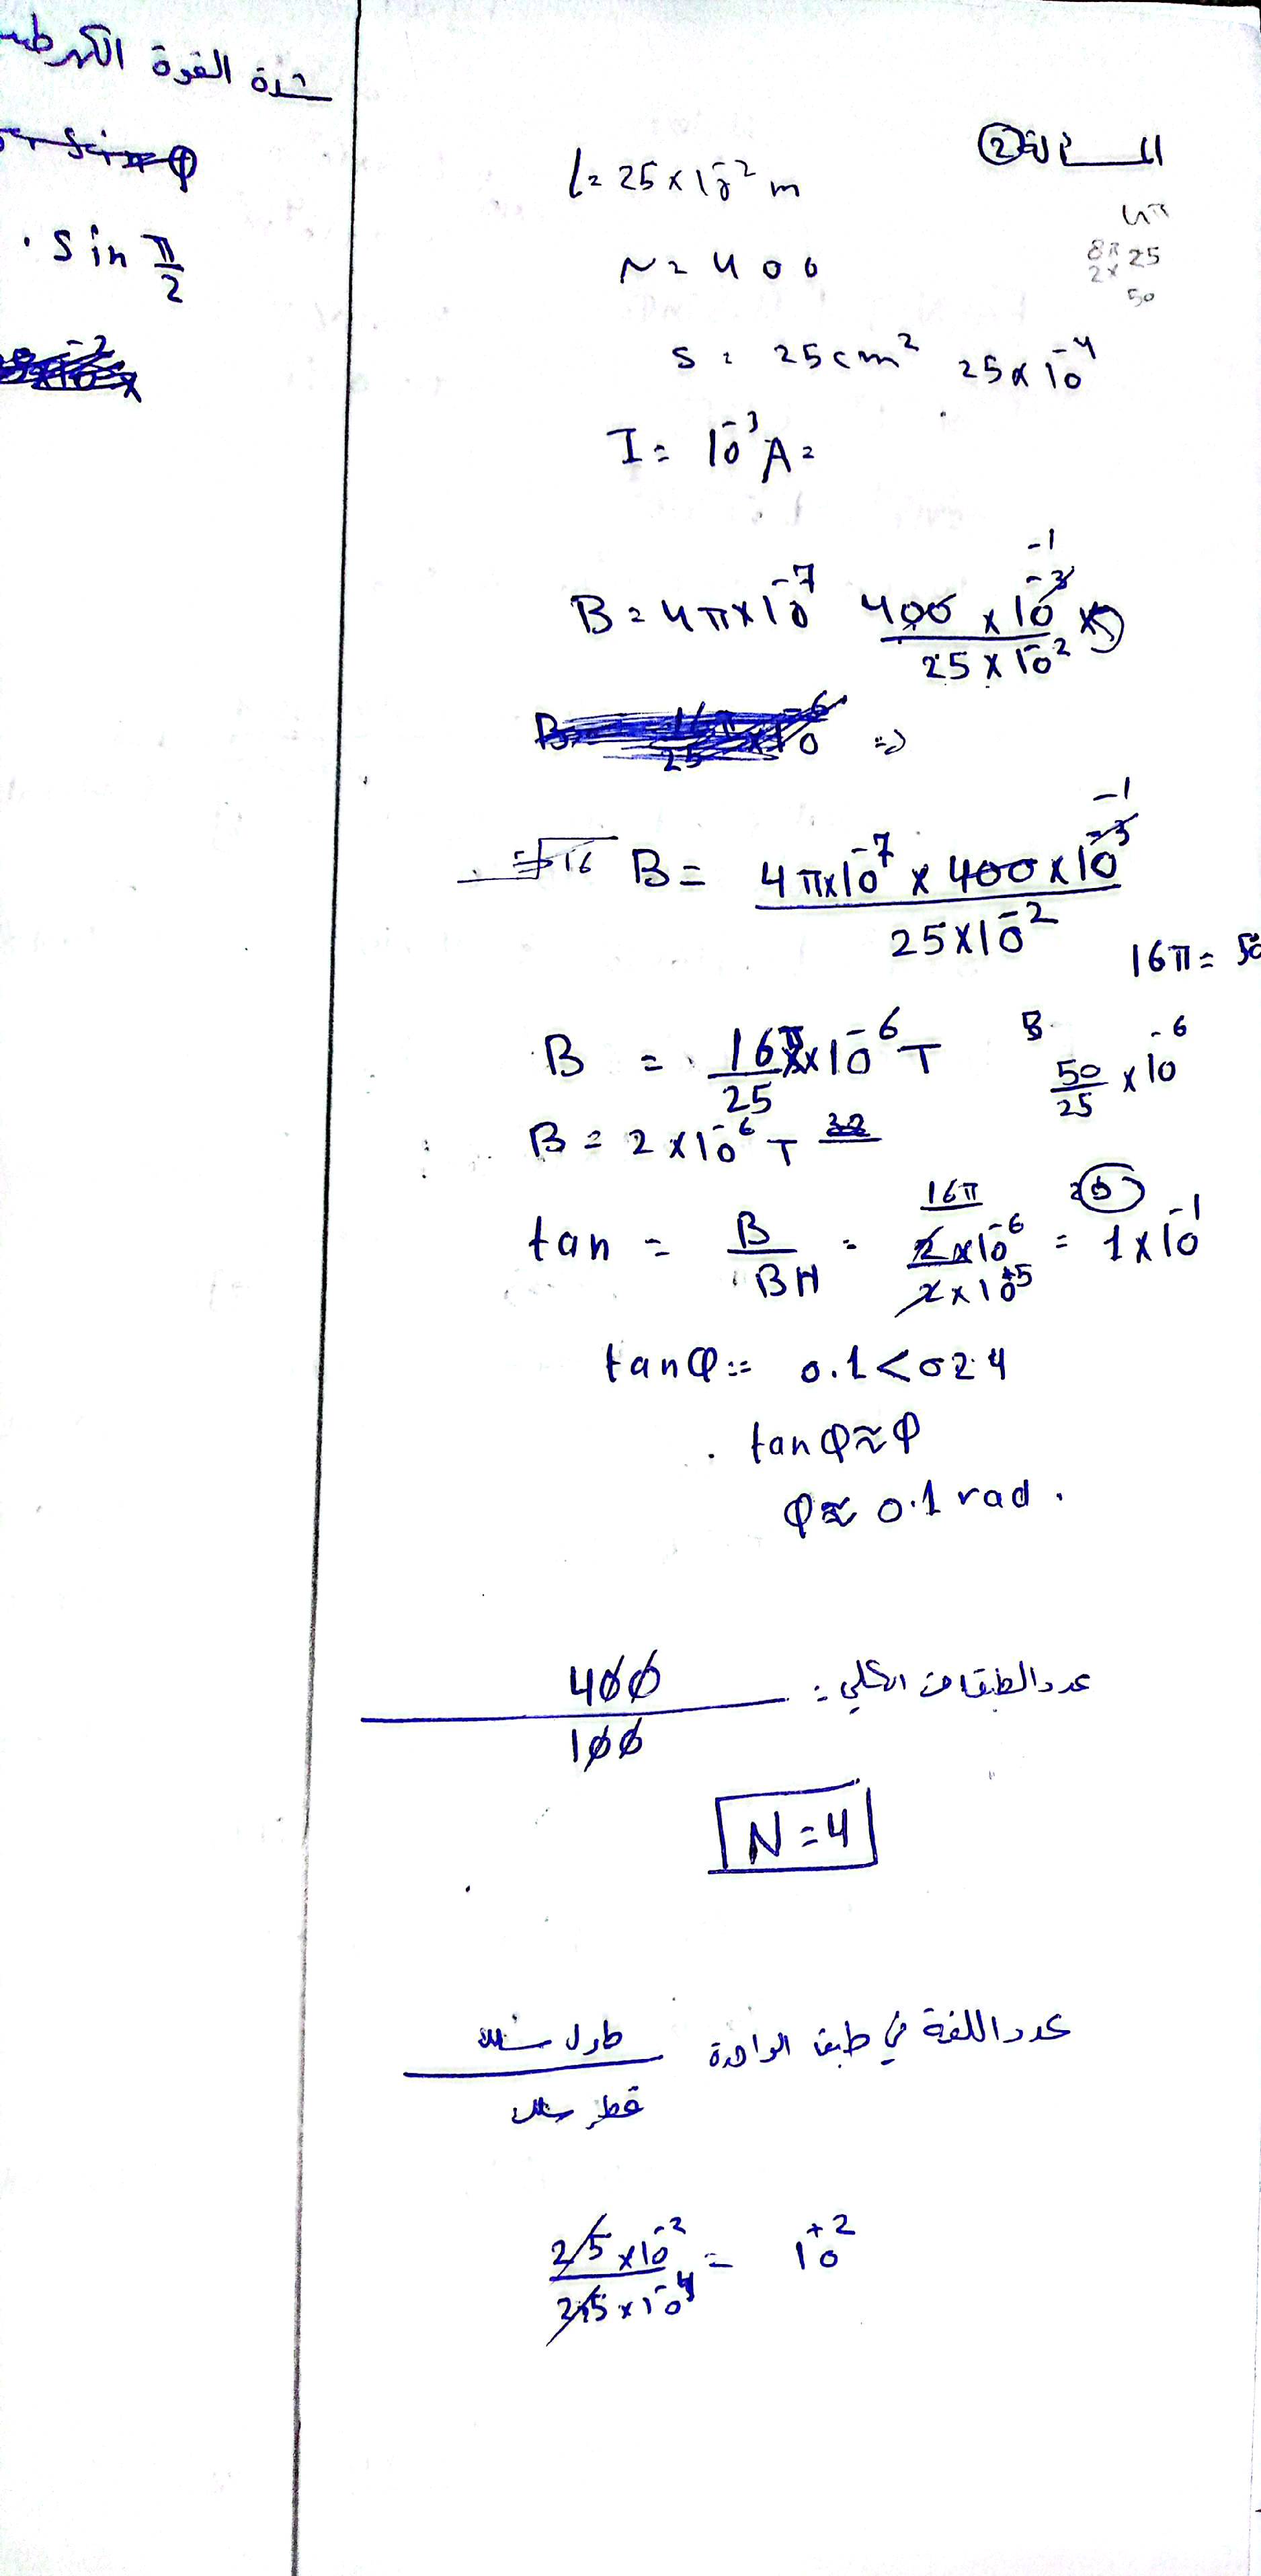 شدة القوة الكهرطيـ
. sin π/2
المسألة ②
l = 25 × 10⁻² m
4π
8π 25
2×
50
N = 400
s = 25 cm² 25 × 10⁻⁴
I = 10⁻³ A =
B = 4π × 10⁻⁷ 400 × 10⁻³ / 25 × 10⁻² -1
=>
16 B = 4π × 10⁻⁷ × 400 × 10⁻³ / 25 × 10⁻² -1
16π = 50
B = 16π / 25 × 10⁻⁶ T 50/25 × 10⁻⁶
B = 2 × 10⁻⁶ T 32
16π
tan = B / BH = 2 × 10⁻⁶ / 2 × 10⁻⁵ = 1 × 10⁻¹
tan φ = 0.1 < 02.4
tan φ ≈ φ
φ ≈ 0.1 rad.
عدد الطبقات الكلي = 400 / 100
N = 4
عدد اللفة في طبق الواحدة طول سلك / قطر سلك
25 × 10⁻² / 25 × 10⁻⁴ = 10⁺²